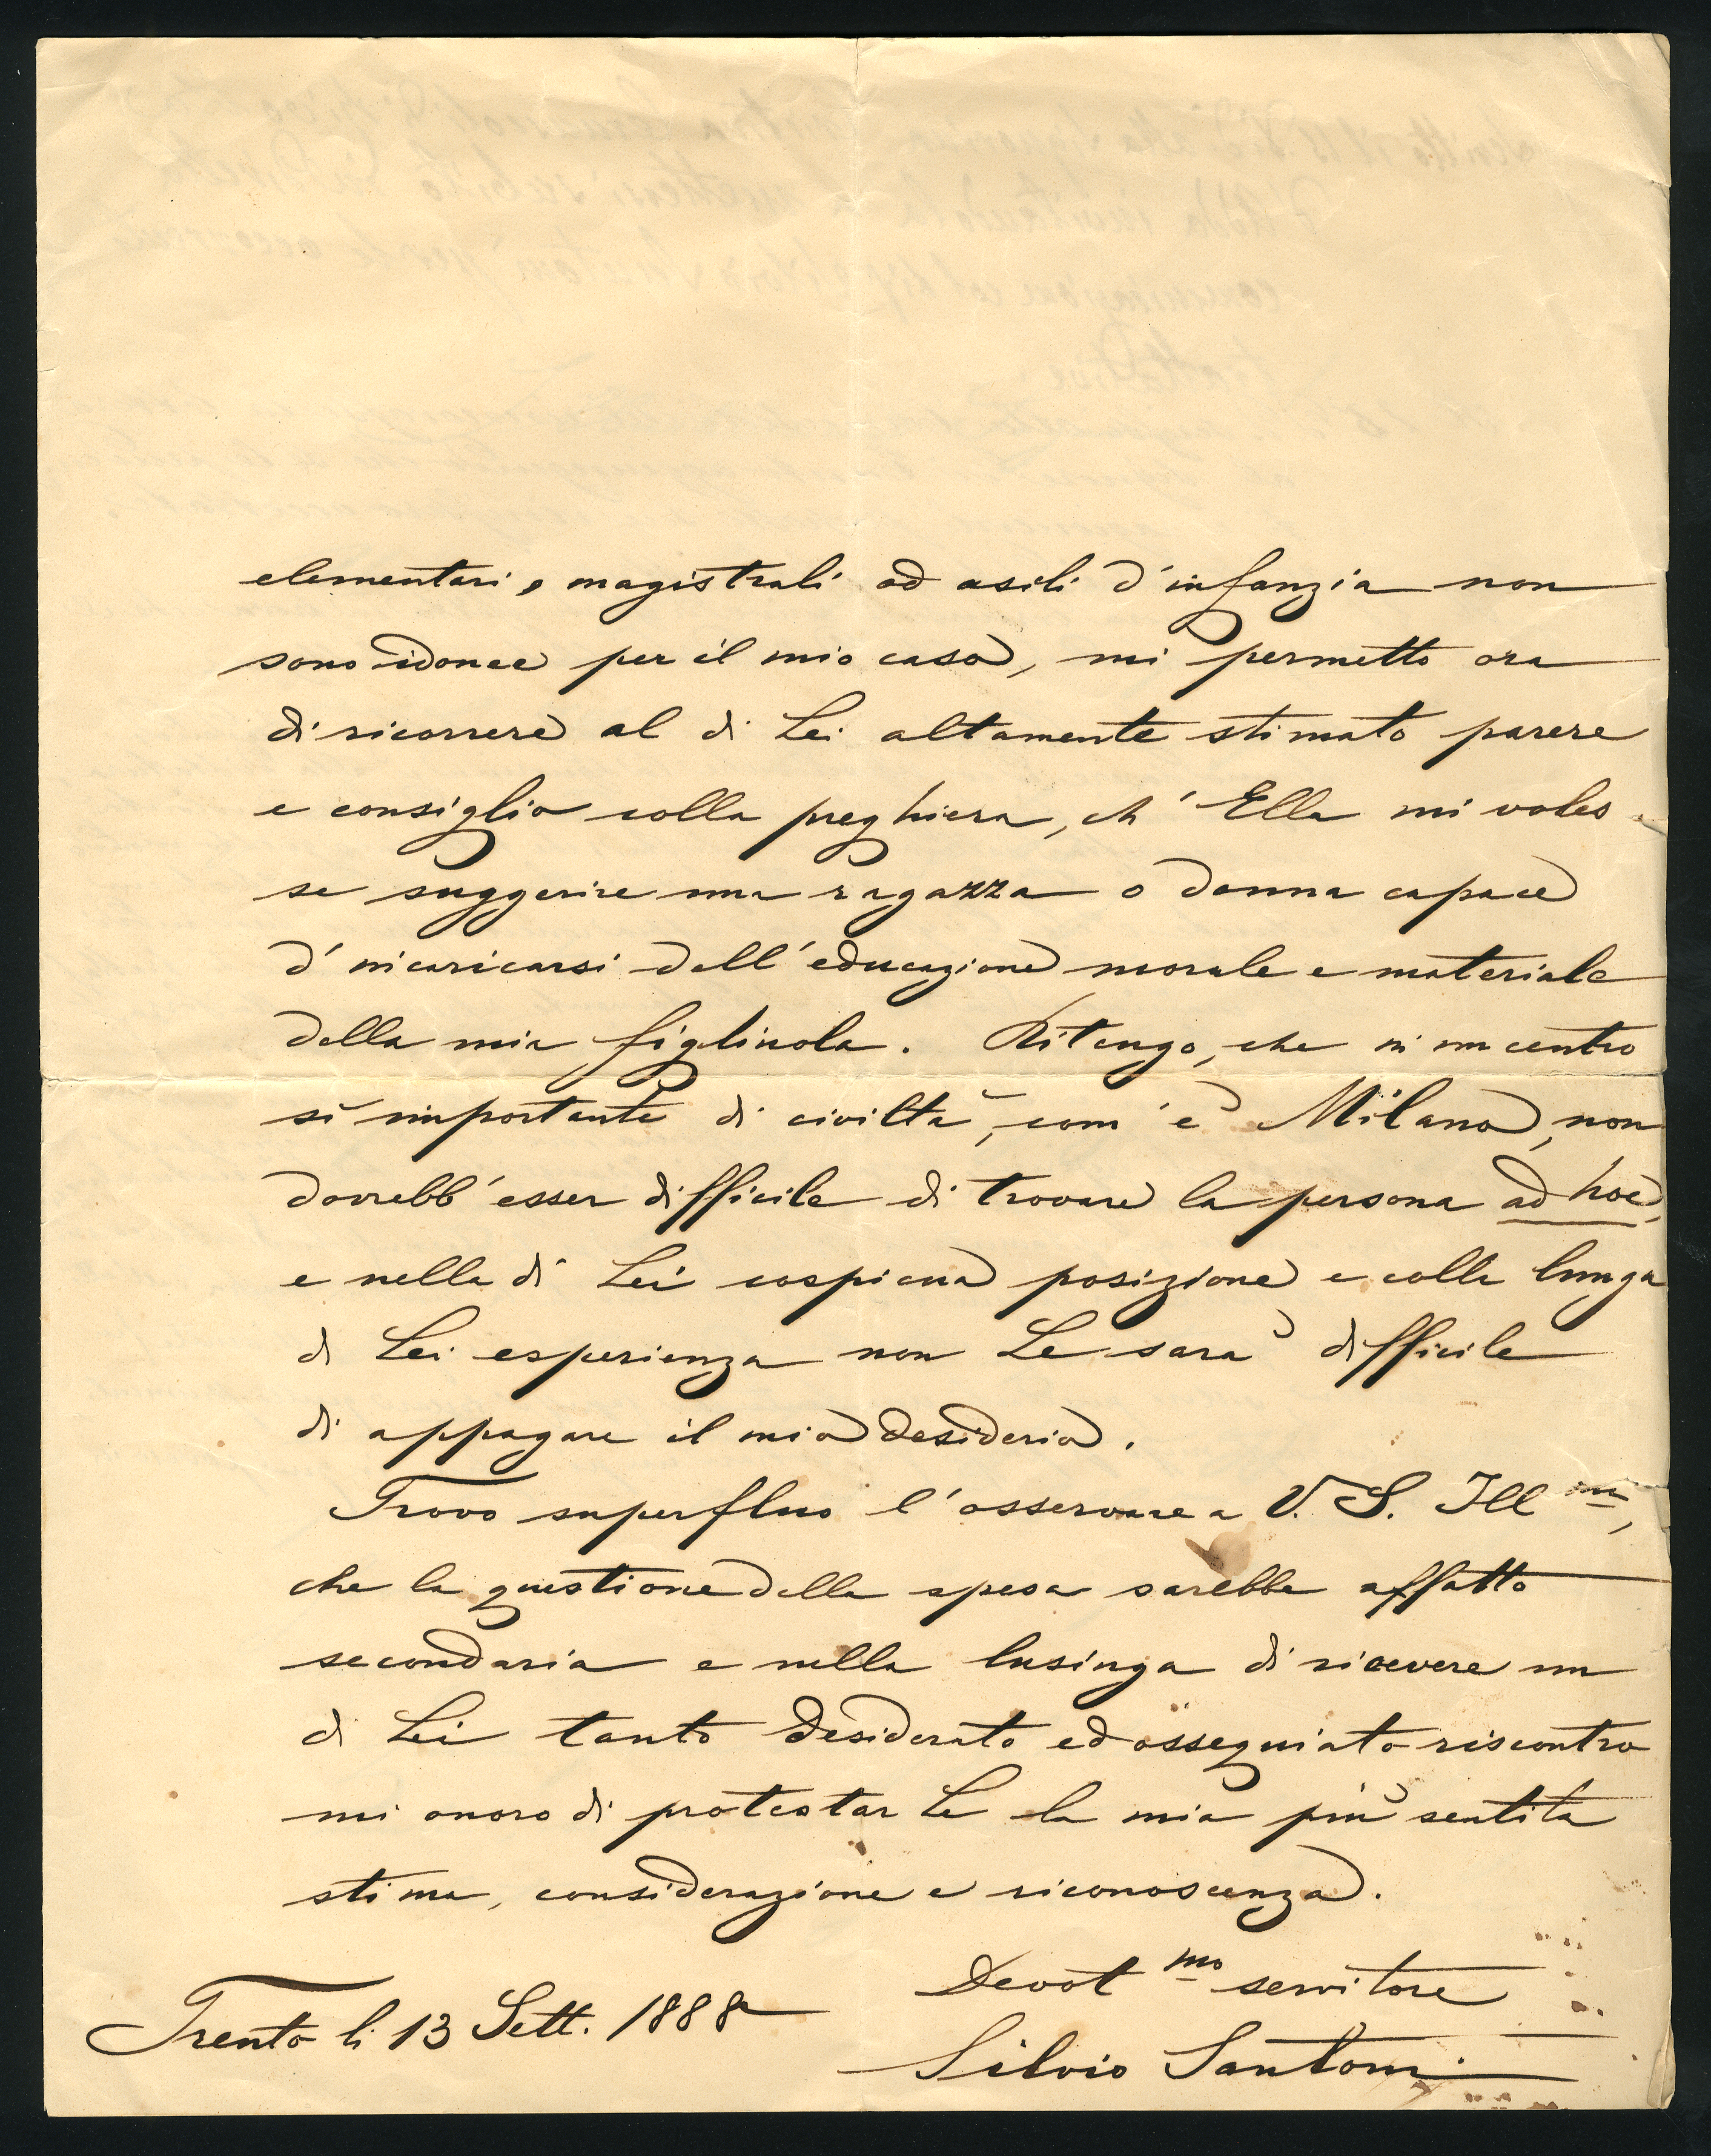 elementari, magistrali ad asili d'infanzia non
sono idonee per il mio caso, mi permetto ora
di ricorrere al di Lei altamente stimato parere
e consiglio colla preghiera, ch'Ella mi voles
se suggerire una ragazza o donna capace
d'incaricarsi dell'educazione morale e materiale
della mia figliuola. Ritengo, che in un centro
sì importante di civiltà, com'è Milano, non
dovrebb'esser difficile di trovare la persona ad hoc,
e nella di Lei cospicua posizione e colla lunga
di Lei esperienza non Le sarà difficile
di appagare il mio desiderio.
Trovo superfluo l'osservare a V. S. Ill ma,
che la questione della spesa sarebbe affatto
secondaria e nella lusinga di ricevere un
di Lei tanto desiderato ed ossequiato riscontro
mi onoro di protestar Le la mia più sentita
stima, considerazione e riconoscenza.
Devot mo servitore
Trento li 13 Sett. 1888
Silvio Santoni